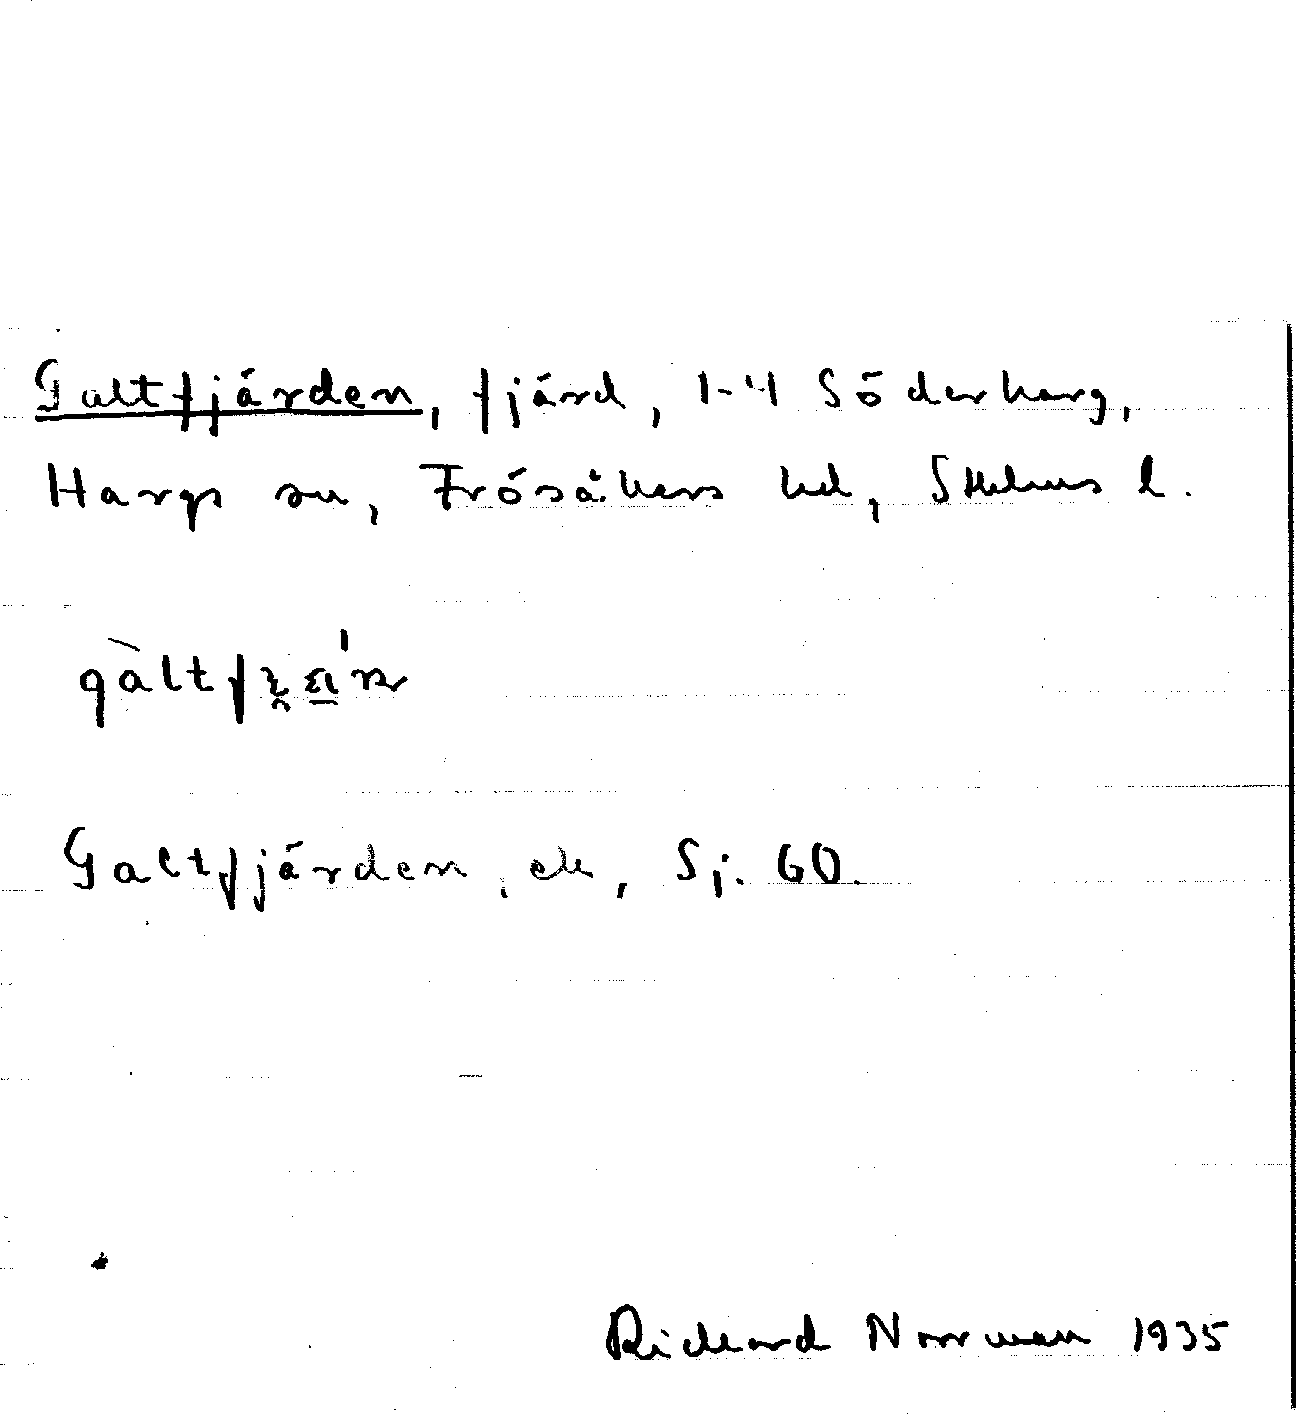 Galtfjärden, fjärd, 1-4 Söderharg,
Hargs sn, Frösåkers hd, Sthlms l.
Galtfjärden, ek, Sj. 60.
Richard Norrman 1935